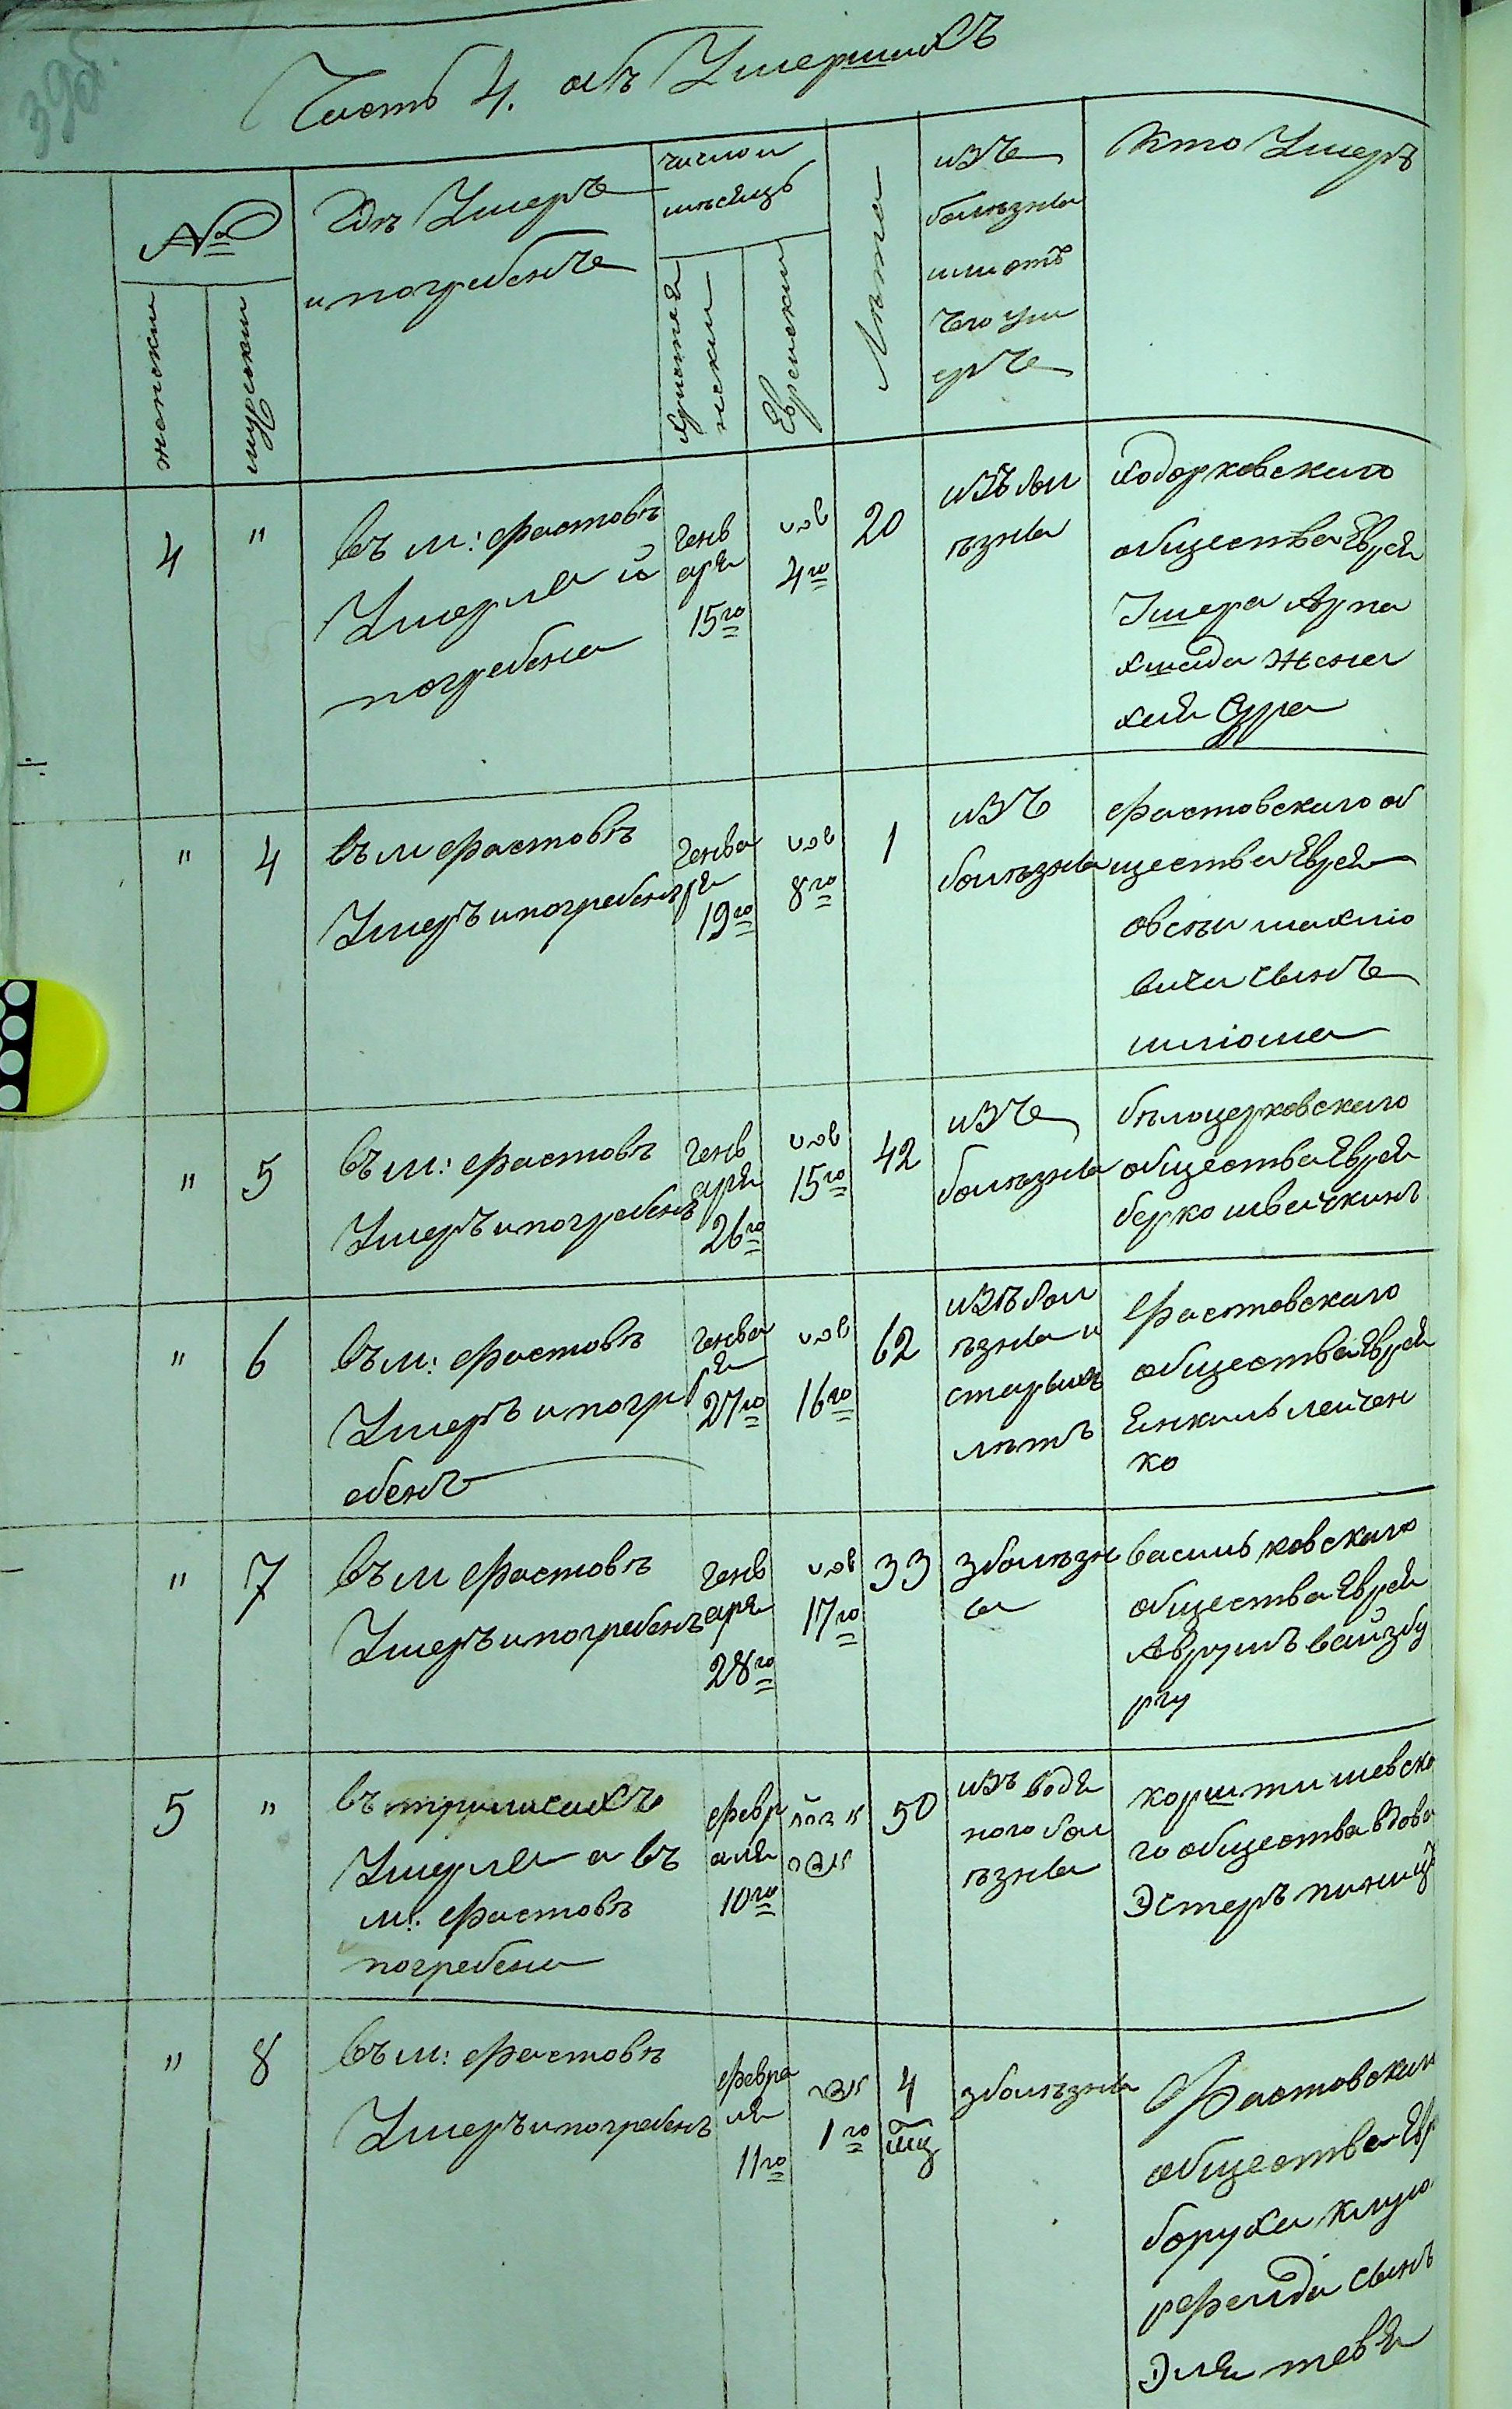 39об.
Часть 4. объ Умершихъ
№
женски
мужски
Гдѣ Умеръ
и погребенъ
число и
мѣсяцъ
Христiя
нски
Еврейски
Лѣта
изъ
болѣзни
или отъ
чего ум
еръ
Кто Умеръ
4
"
въ м: Фастовѣ
Умерла и
погребена
Генв
аря
15го
שבט
4го
20
изъ бол
ѣзни
Ходорковского
общества Еврея
Умера Арпа
хшада жена
хая Сура
"
4
въ м Фастовѣ
Умеръ и погребенъ
Генва
ря
19го
שבט
8го
1
изъ
болѣзни
Фастовскаго об
щества Еврея
овсѣи махлiо
вича сынъ
шлiома
"
5
въ м: Фастовѣ
Умеръ и погребенъ
Генв
аря
26го
שבט
15го
42
изъ
болѣзни
бѣлоцерковскаго
общества Еврей
берко швейчкинъ
"
6
въ м: Фастовѣ
Умеръ и погр
ебенъ
Генва
ря
27го
שבט
16го
62
изъ бол
ѣзни и
старыхъ
лѣтъ
Фастовскаго
общества Еврей
Еинкиль лейчен
ко
"
7
въ м Фастовѣ
Умеръ и погребенъ
Генв
аря
28го
שבט
17го
33
зболѣзн
и
василь ковскаго
общества Еврей
Аврумъ вайзбу
ргу
5
"
въ трилисахъ
Умерла а въ
м: Фастовѣ
погребена
Февр
аля
10го
אדר
50
изъ водя
ного бол
ѣзни
коршти шевско
го общества вдова
Эстеръ
"
8
въ м: Фастовѣ
Умеръ и погребенъ
Февра
ля
11го
אדר
1го
4
мц
зболѣзни
Фастовскаго
общества Евр
боруха
сынъ
Эля тевя